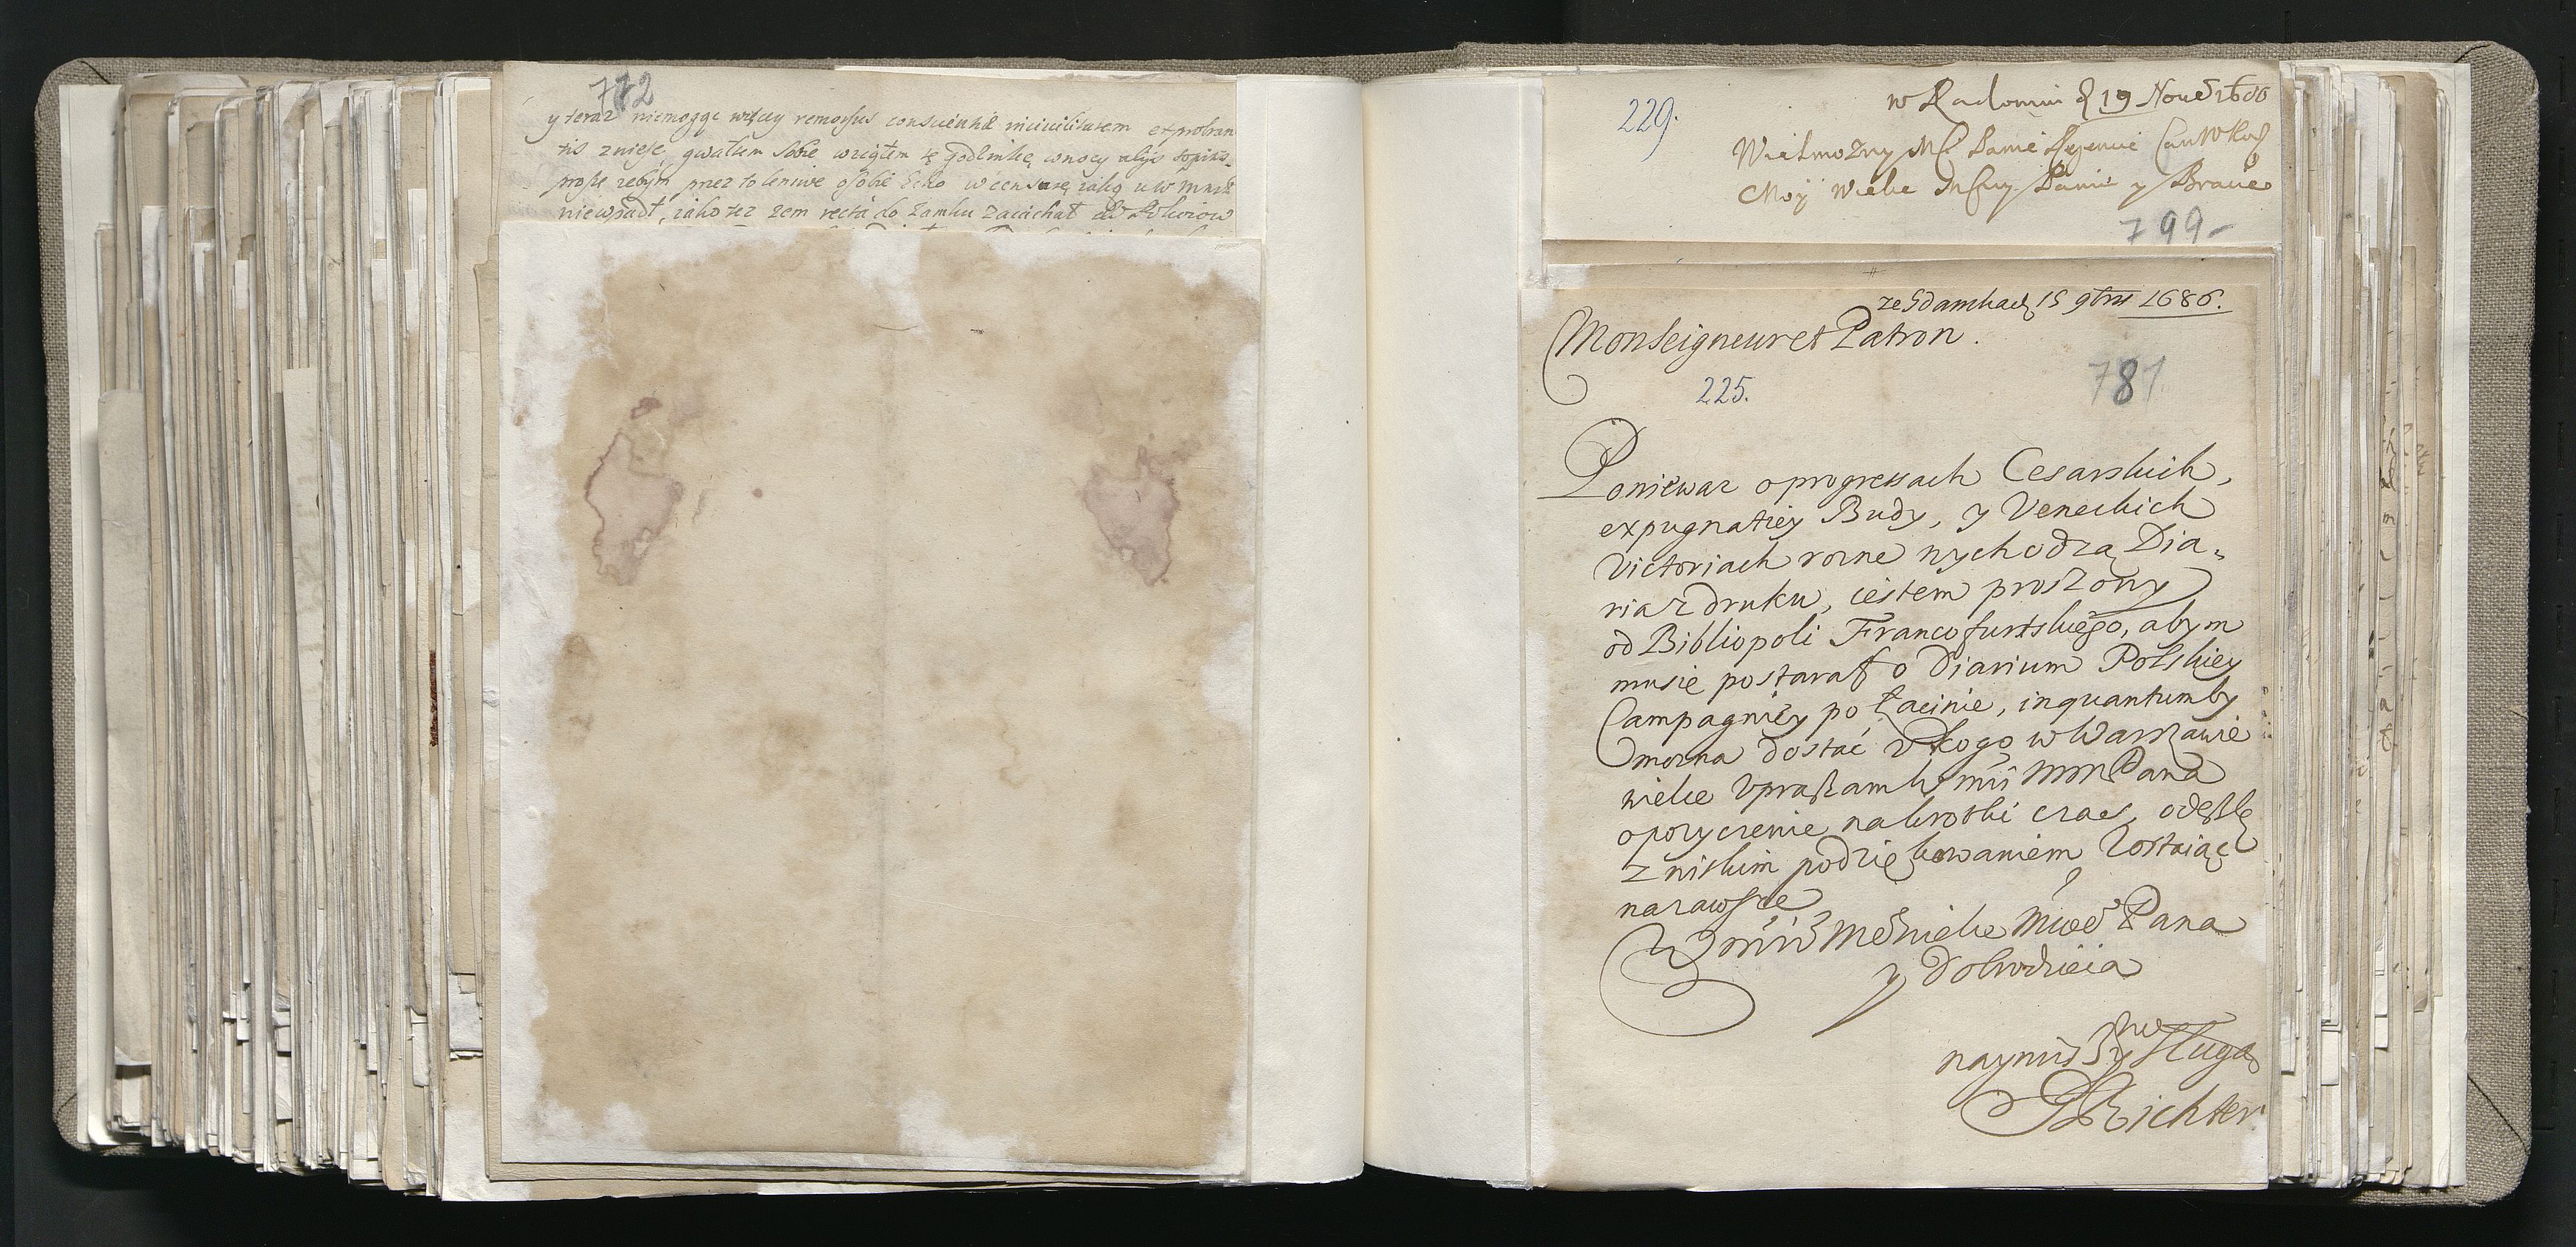 772
y teraz niemogąc więcy remorsus conscientiæ inciuilitatem exproban
tis znieść, gwałtem sobie wziąłem tę godzinkę wnocy alijs sopitis
proszę zebym przez to leniwe osobie Echo w censurę iaką u w
niewpadł, iako tez zem recta do zamku zaiachał
229.
w Radomiu 19 Nou 1686
Wielmozny Mć Panie Regencie
Moy wielce Mściwy Panie y Bracie
799
ze Gdanska 15 9bris 1686.
Monseigneur et Patron.
225.
781
Poniewaz o progressach Cesarskich,
expugnatiey Budy, y Veneckich
Victoriach rozne wychodzą Dia-
ria z druku, iestem proszony
od Bibliopoli Francofurtskiego, abym
musie postarał o Diarium Polskiey
Campagniey po Łacinie, inquantumby
mozna dostać v kogo w Warszawie
wielce vpraszam Wmći mm Pana
o pozyczenie na krotki czas, odeszlę
z niskim podziękowaniem zostaiąc
nazawsze
Wmći Mego wielce Młwego Pana
y Dobrodzieia
naynizszy sługa
Richter